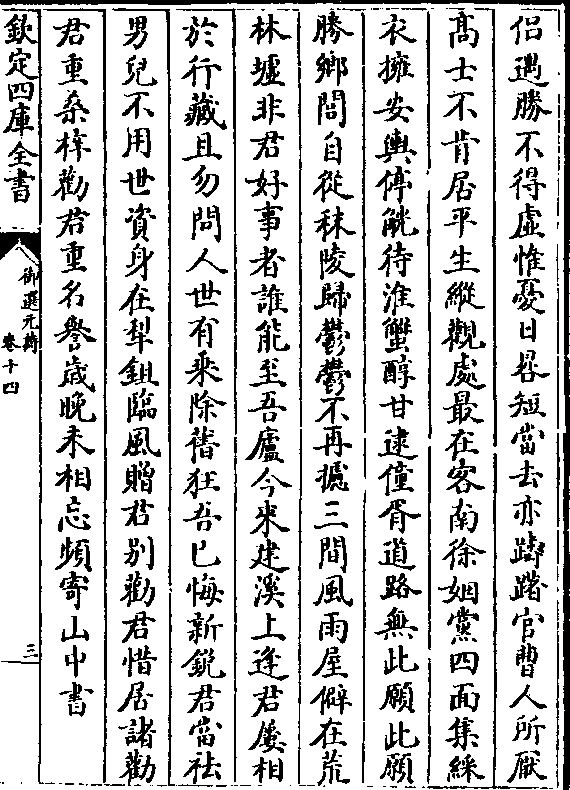 侣遇勝不得虛惟憂日晷短當去亦躊躇官曹人所厭
髙士不肯居平生縱觀處最在客南徐姻黨四面集綵
衣擁安輿傳觥待淮蟹醇甘逮僮胥道路無此願此願
勝鄉閭自從秣陵歸鬱鬱不再攄三間風雨屋僻在荒
林墟非君好事者誰能至吾廬今來建溪上逢君屢相
於行藏且勿問人世有乘除舊狂吾已悔新銳君當祛
男兒不用世資身在犁鉏臨風贈君别勸君惜居諸勸
君重桑梓勸君重名譽歲晩未相忘頻寄山中書
欽定四庫全書
御選元詩
卷十四
三